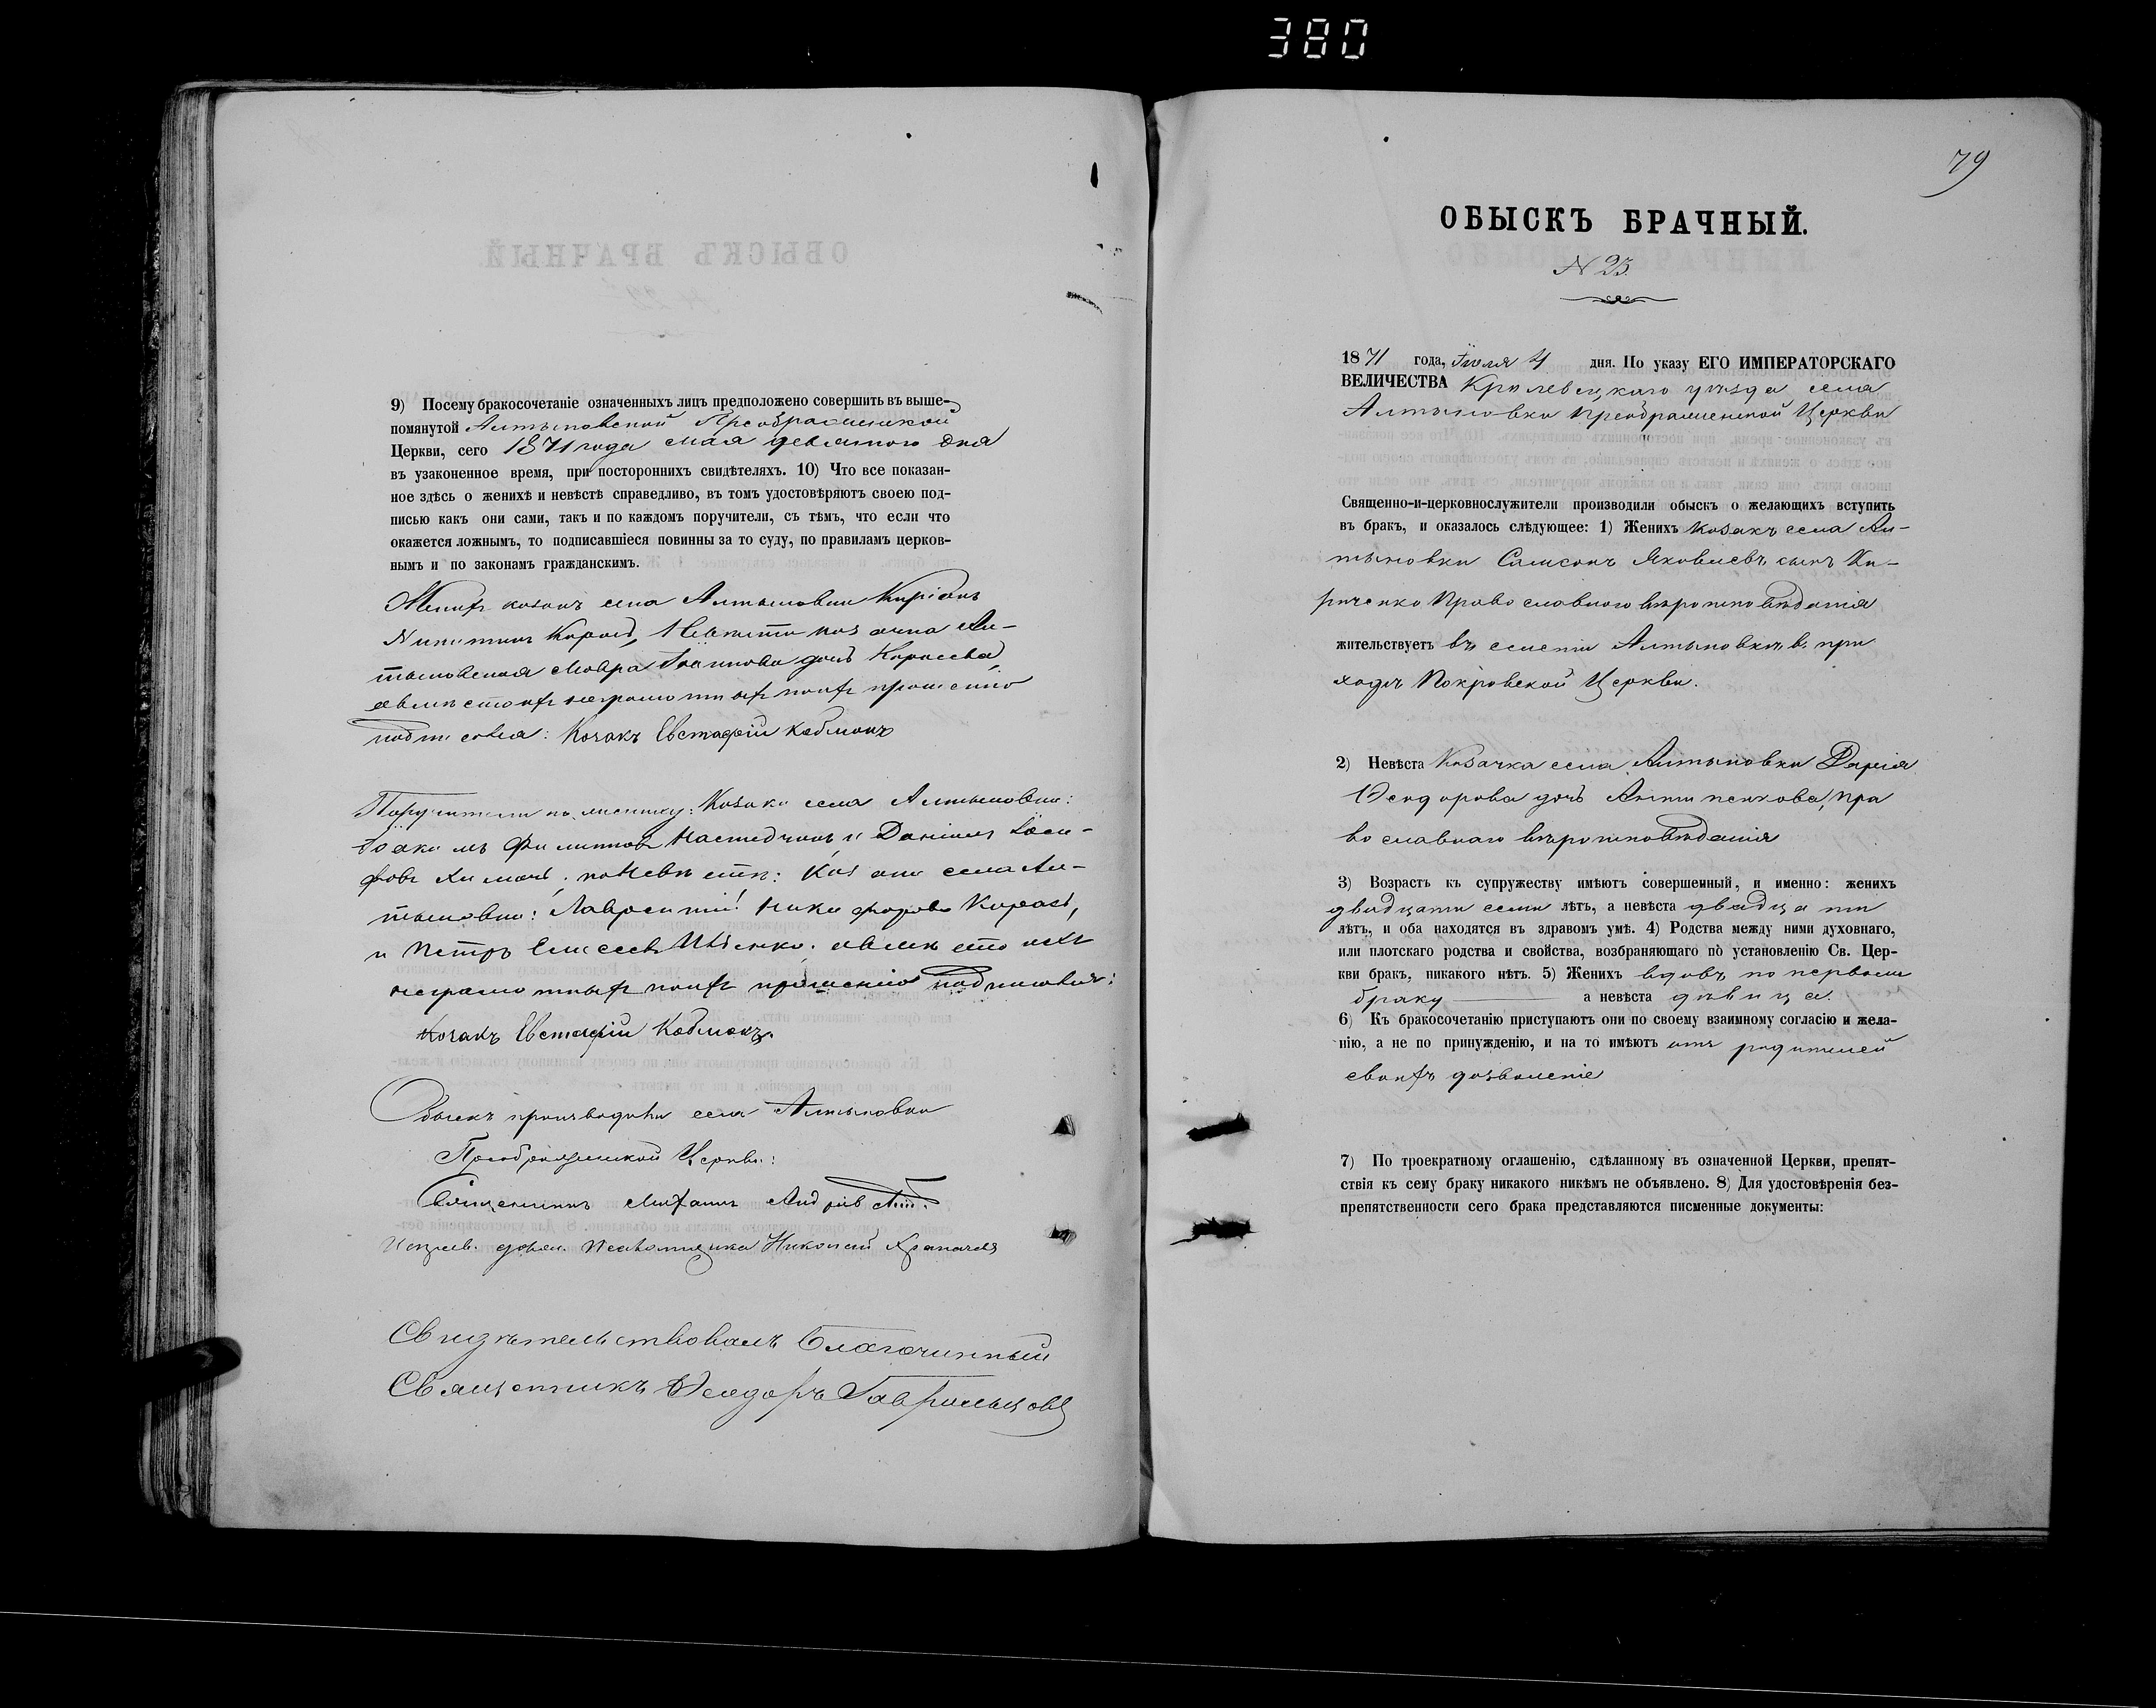 380
9) Посему бракосочетаніе означенныхъ лицъ предположено совершить въ выше-
помянутой Алтыновской Преображенской
Церкви, сего 1871 года мая девятого дня
въ узаконенное время, при постороннихъ свидѣтеляхъ. 10) Что все показан-
ное здѣсь о женихѣ и невѣстѣ справедливо, въ томъ удостовѣряютъ своею под-
писью какъ они сами, такъ и по каждомъ поручители, съ тѣмъ, что если что
окажется ложнымъ, то подписавшіеся повинны за то суду, по правиламъ церков-
нымъ и по законамъ гражданскимъ.
Женихъ козакъ села Алтыновки
Невѣста козачка Ал-
тыновская Мавра Іоаннова дочь
неграмотныхъ ихъ прошенію
подписовся: Козакъ Евстафій
Поручители по жениху: Козаки села Алтыновки:
Іоакимъ Филиповъ и Даніилъ Іоси-
фовъ по Невѣстѣ: Козаки села Ал-
тыновки: Лаврентій Никифоровъ
и Петръ Елисеевъ
неграмотныхъ ихъ прошенію подписовся:
Козакъ Евстафій
Обыскъ производили села Алтыновки
Преображенской Церкви:
Священникъ
Николай
Свидѣтельствовалъ Благочинный
Священникъ Ѳеодоръ
79
ОБЫСКЪ БРАЧНЫЙ.
N 23.
1871 года, Іюля 4 дня. По указу ЕГО ИМПЕРАТОРСКАГО
ВЕЛИЧЕСТВА Кролевецкаго уѣзда села
Алтыновки Преображенской Церкви
Священно-и-церковнослужители производили обыскъ о желающихъ вступить
въ бракъ, и оказалось слѣдующее: 1) Женихъ Козакъ села Ал-
тыновки Самсонъ Яковлевъ сынъ Ки-
риченко Православного вѣроисповѣданія
жительствуетъ въ селеніи Алтыновки, в при
ходѣ Покровской Церкви.
2) Невѣста Козачка села Алтыновки Дарія
Ѳеодорова дочь пра
вославнаго вѣроисповѣданія
3) Возрастъ къ супружеству имѣютъ совершенный, и именно: женихъ
двадцати семи лѣтъ, а невѣста двадцати
лѣтъ, и оба находятся въ здравомъ умѣ. 4) Родства между ними духовнаго,
или плотскаго родства и свойства, возбраняющаго по установленію Св. Цер-
кви бракъ, никакого нѣтъ. 5) Женихъ вдовъ по первому
браку а невѣста дѣвица.
6) Къ бракосочетанію приступаютъ они по своему взаимному согласію и жела-
нію, а не по принужденію, и на то имѣютъ отъ родителей
своихъ дозволеніе
7) По троекратному оглашенію, сдѣланному въ означенной Церкви, препят-
ствія къ сему браку никакого никѣмъ не объявлено. 8) Для удостовѣренія без-
препятственности сего брака представляются писменные документы: